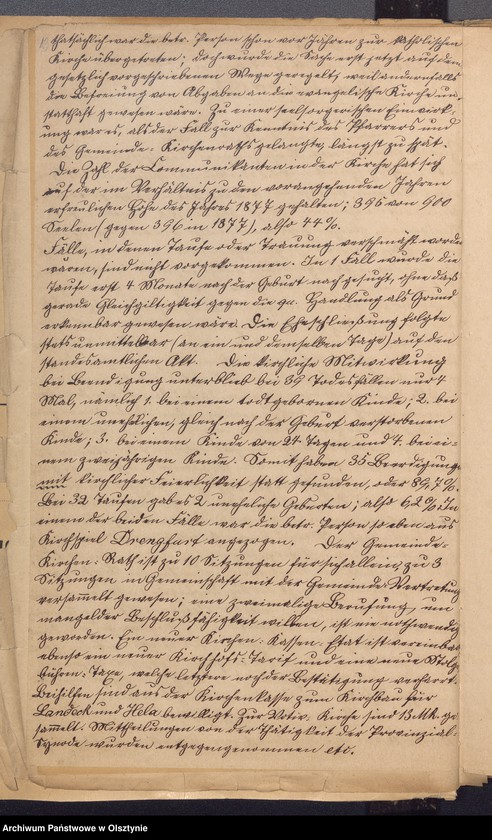 thatsächlich war die betr. Person schon vor Jahren zur katholischen
Kirche übergetreten; doch wurde die Sache erst jetzt auf dem
gesetzlich vorgeschriebenen Wege geregelt, weil andernfalls
die Befreiung von Abgaben an die evangelische Kirche un-
statthaft gewesen wäre. Zu einer seelsorgerischen Einwirk-
ung war es, als der Fall zur Kenntnis des Pfarrers und
des Gemeinde-Kirchenraths gelangte längst zu spät.
Die Zahl der Communikanten in der Kirche hat sich
auf der im Verhältnis zu den vorangehenden Jahren
erfreulichen Höhe des Jahres 1877 gehalten; 396 von 900
Seelen (gegen 396 in 1877), also 44%.
Fälle, in denen Taufe oder Trauung verschmäht worden
wären, sind nicht vorgekommen. In 1 Fall wurde die
Taufe erst 4 Monate nach der Geburt nachgesucht, ohne daß
gerade Gleichgiltigkeit gegen die Handlung als Grund
erkennbar gewesen wäre. Die Eheschließung folgte
stets unmittelbar (an ein und demselben Tage) auf den
standesamtlichen Akt. Die kirchliche Mitwirkung
bei Beerdigung unterblieb bei 39 Todesfällen nur 4
Mal, nämlich 1. bei einem todtgebornen Kinde; 2. bei
einem unehelichen, gleich nach der Geburt verstorbenen
Kinde; 3. bei einem Kinde von 24 Tagen und 4. bei ei-
nem zweijährigen Kinde. Somit haben 35 Beerdigungen
mit kirchlicher Feierlichkeit statt gefunden, oder 89,7%.
Bei 32 Taufen gab es 2 uneheliche Geburten; also 6,2%. In
einem der beiden Fälle war die betr. Person soeben aus
Kirchspiel Drengfurt angezogen. Der Gemeinde-
Kirchen-Rath ist zu 10 Sitzungen für sich allein, zu 3
Sitzungen in Gemeinschaft mit der Gemeinde-Vertretung
versammelt gewesen; eine zweimalige Berufung, um
mangelder Beschlußfähigkeit willen, ist nie nothwendig
geworden. Ein neuer Kirchen-Kassen-Etat ist vereinbart
ebenso ein neuer Kirchhofs-Tarif und eine neue Stolge-
bühren-Taxe, welche letztere noch der Bestätigung
Beihilfen sind aus der Kirchenkasse zum Kirchbau für
und Hela bewilligt. Zur Kirche sind 13 Mk. ge-
sammelt. Mittheilungen von der Thätigkeit der Provinzial-
Synode wurden entgegengenommen etc.
Archiwum Państwowe w Olsztynie